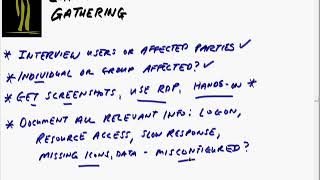 GATHERING
* INTERVIEW USERS OR AFFECTED PARTIES ✓
* INDIVIDUAL OR GROUP AFFECTED? ✓
* GET SCREENSHOTS, USE RDP, HANDS-ON *
* DOCUMENT ALL RELEVANT INFO: LOGON,
RESOURCE ACCESS, SLOW RESPONSE,
MISSING ICONS, DATA - MISCONFIGURED?